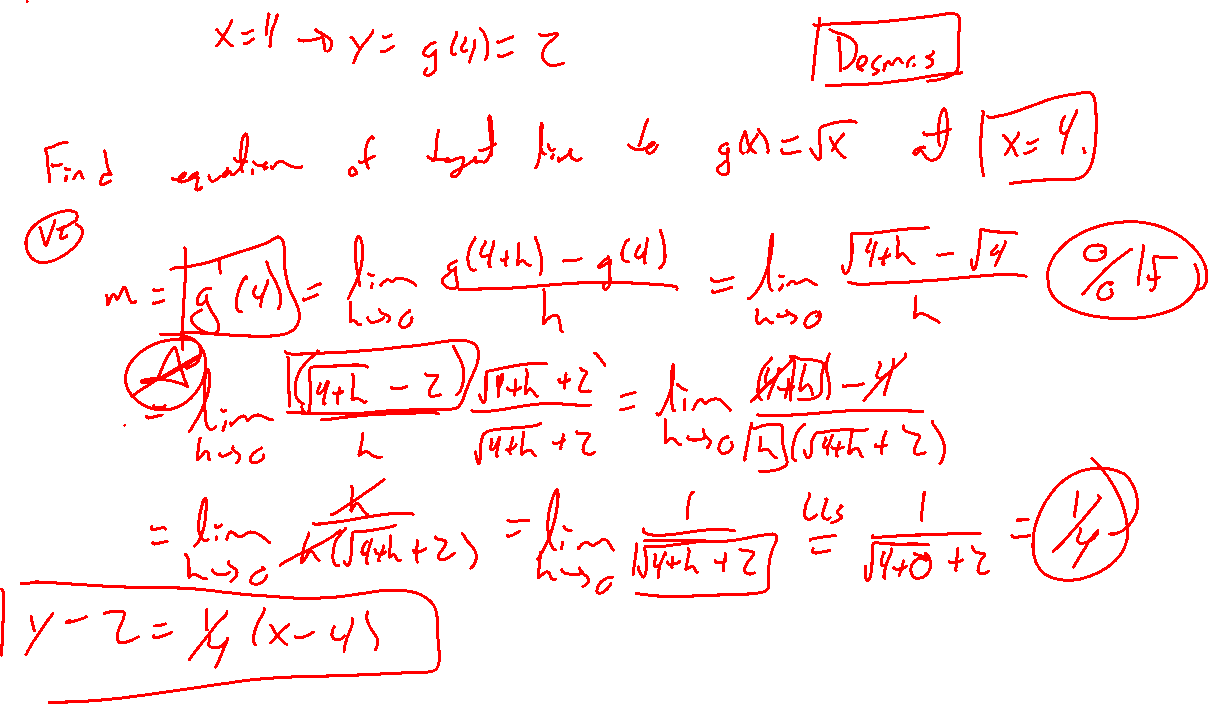 x=4 → y = g(4) = 2
Desmos
Find equation of tngt line to g(x) = √x at x=4.
m = g'(4) = lim h→0 (g(4+h) - g(4))/h = lim h→0 (√(4+h) - √4)/h 0/0 IF
= lim h→0 (√(4+h) - 2)/h (√(4+h) + 2)/(√(4+h) + 2) = lim h→0 ((4+h) - 4)/(h(√(4+h) + 2))
= lim h→0 h/(h(√(4+h) + 2)) = lim h→0 1/(√(4+h) + 2) LLs = 1/(√(4+0) + 2) = 1/4
y - 2 = 1/4 (x - 4)